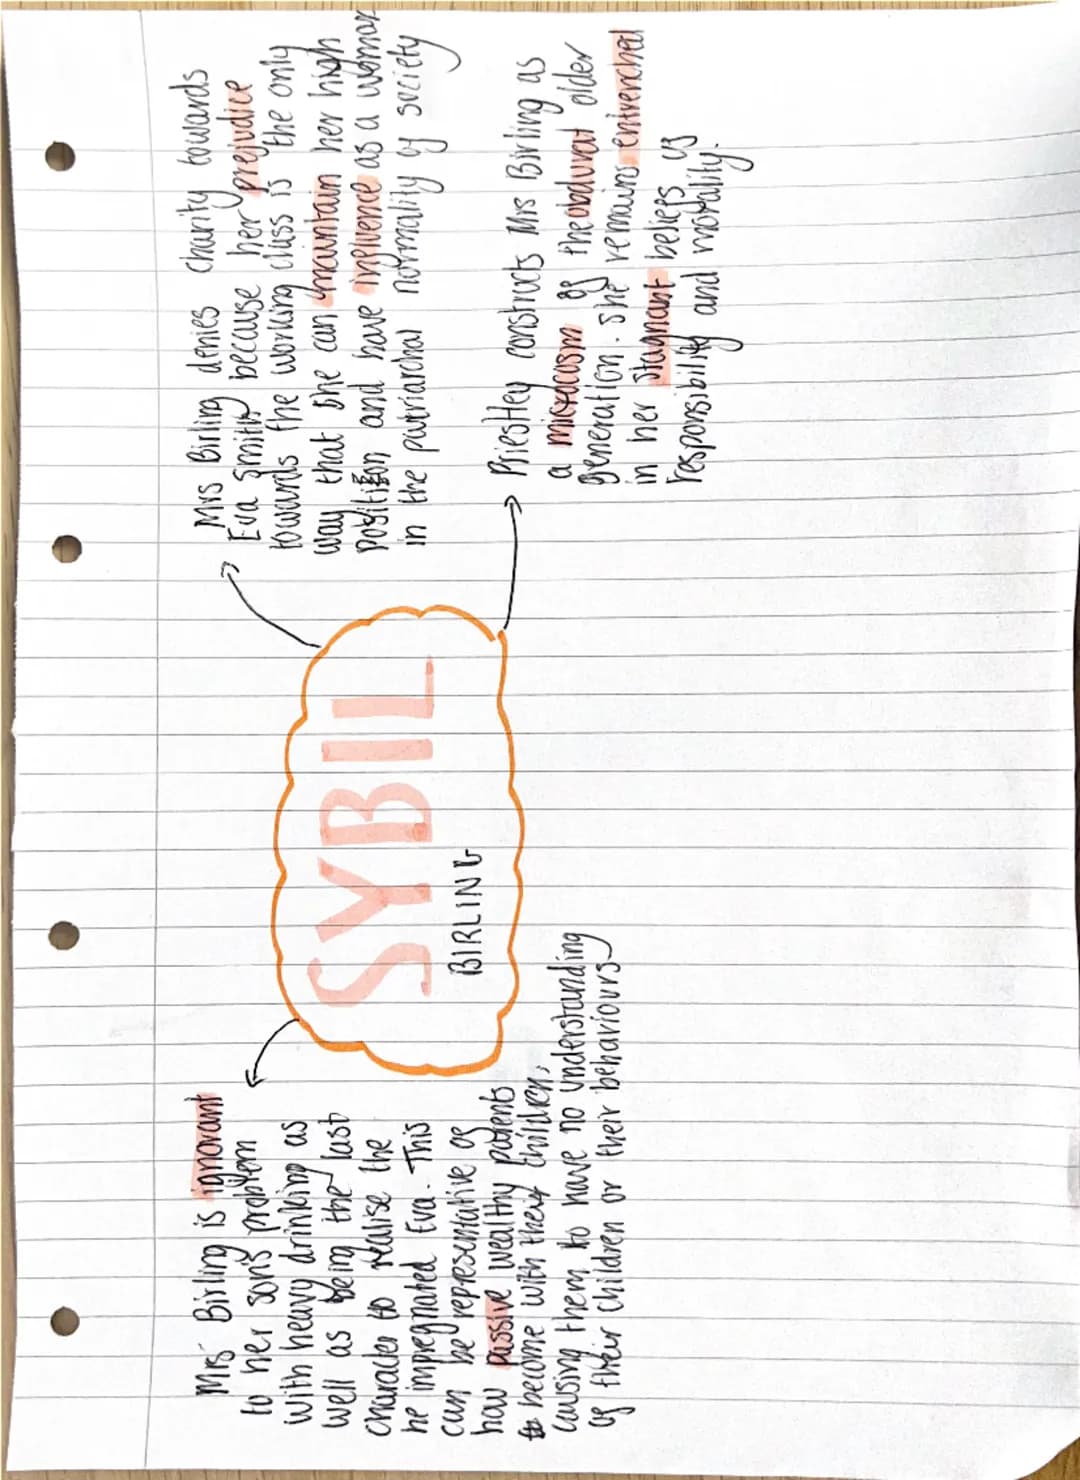 Mrs Birling is ignorant
to her son's problem
with heavy drinking as
well as being the last
character to realise the
he impregnated Eva. This
can be representative of
how passive wealthy parents
become with their children,
causing them to have no understanding
of their children or their behaviours
SYBIL
BIRLING
Mrs Birling denies charity towards
Eva Smith because her prejudice
towards the working class is the only
way that she can maintain her high
position and have inflvence as a woman
in the patriarchal normality of society
Priestley constructs Mrs Birling as
a microcosm of the obdurat older
generation. She remains entrenched
in her stagnant beliefs of
responsibility and morality.